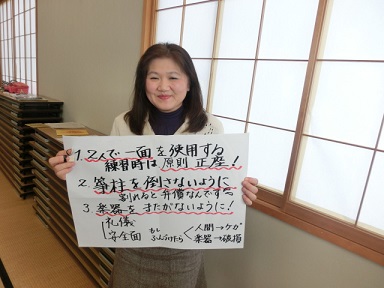 1. 2人で一面を使用する
練習時は原則正座!
2. 箏柱を倒さないように
割れると弁償なんです
3. 楽器をまたがないように!
礼儀
安全面
もし
ふんづけたら
人間→ケガ
楽器→破損